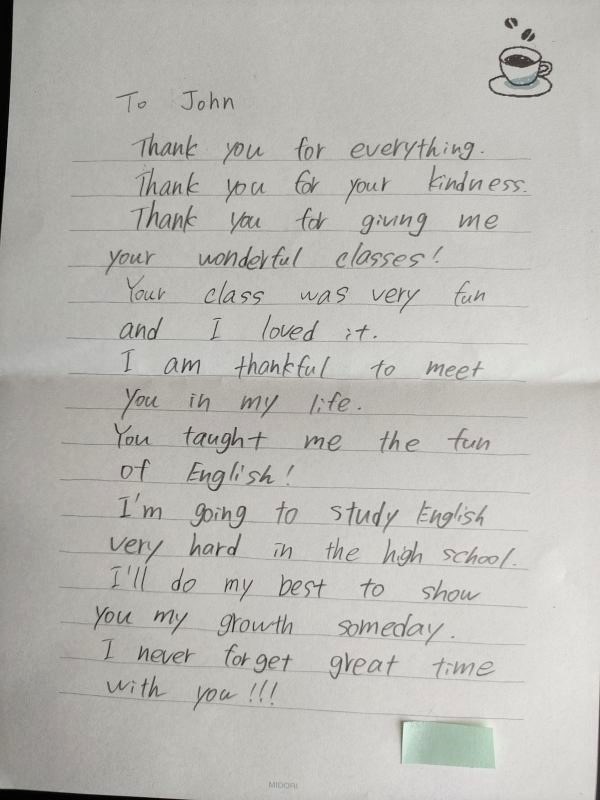 To John
Thank you for everything.
Thank you for your kindness.
Thank you for giving me
your wonderful classes!
Your class was very fun
and I loved it.
I am thankful to meet
you in my life.
You taught me the fun
of English!
I'm going to study English
very hard in the high school.
I'll do my best to show
you my growth someday.
I never forget great time
with you!!!
MIDORI